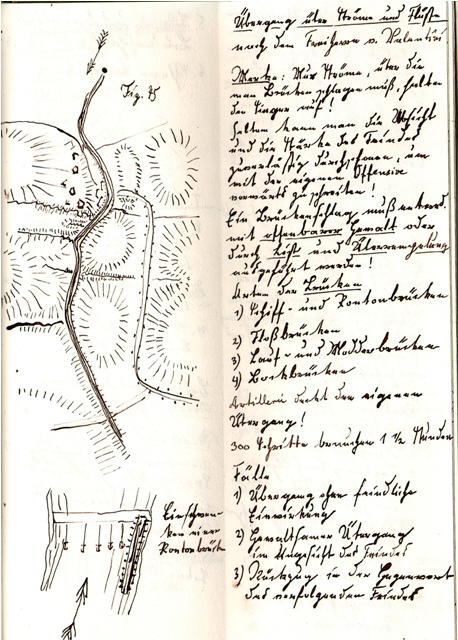 Fig.
Einschwen-
ken einer
Pontonbrücke
Übergang über Ströme und Flüße
nach dem Freiherrn v. Valentini
Merke: Nur Ströme, über die
man Brücken schlagen muß, halten
den Sieger auf!
Selten kann man die Absicht
und die Stärke des Feindes
zuverlässig durchschauen, um
mit der eigenen Offensive
vorwärts zu schreiten!
Ein Brückenschlag muß entwed.
mit offenbarer Gewalt oder
durch List und Überrumpelung
ausgeführt werden!
Arten der Brücken
1) Schiff- und Pontonbrücken
2) Floßbrücken
3) Lauf- und Modderbrücken
4) Bockbrücken
Artillerie deckt den eigenen
Übergang!
300 Schritte brauchen 1 ½ Stunden
Fälle
1) Übergang ohne feindliche
Einwirkung
2) Gewaltsamer Übergang
im Angesicht des Feindes
3) Rückzug in der Gegenwart
des verfolgenden Feindes